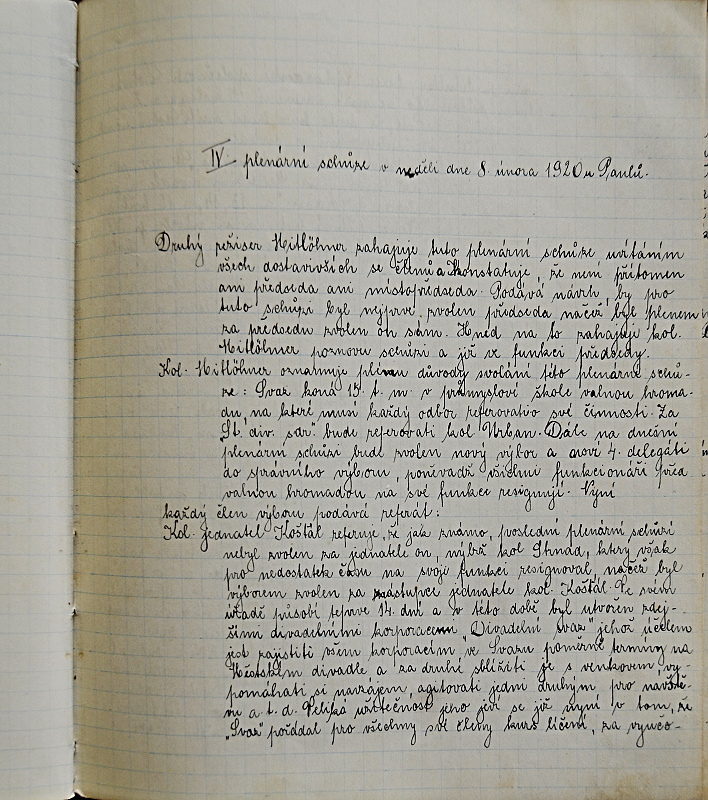 IV plenární schůze v neděli dne 8. února 1920 u Paulů.
Druhý režiser Hitlöhner zahajuje tuto plenární schůze uvítáním
všech dostavivších se členů a konstatuje, že není přítomen
ani předseda ani místopředseda. Podává návrh, by pro
tuto schůzi byl nejprve zvolen předseda načež byl plenem
za předsedu zvolen on sám. Hned na to zahajuje kol.
Hitlöhner poznovu schůzi a již ve funkci předsedy.
Kol. Hitlöhner oznamuje plénu důvody svolání této plenárné schů-
ze: Svaz koná 15. t. m. v průmyslové škole valnou hroma-
du, na které musí každý odbor referovati o své činnosti. Za
"St. div. sdr." bude referovati kol Urban. Dále na dnešní
plenární schůzi bude zvolen nový výbor a nové 4. delegáti
do správního výboru, poněvadž všichni funkcionáři před
valnou hromadou na své funkce resignují. Nyní
každý člen výboru podává referát:
Kol. jednatel Košťál referuje, že jak známo, poslední plenární schůzí
nebyl zvolen za jednatele on, nýbrž kol Strnad, který však
pro nedostatek času na svoji funkci resignoval, načež byl
výborem zvolen za zástupce jednatele kol. Košťál. Ve svém
úřadě působí teprve 14. dní a v této době byl utvořen zdej-
šími divadelními korporacemi "Divadelní svaz" jehož účelem
jest zajistiti všem korporacím ve Svazu poměrné termíny na
Městském divadle a za druhé sblížiti je s venkovem, vy-
pomáhati si navzájem, agitovati jedni druhým pro návště-
vu a. t. d. Veliká užitečnost jeho jeví se již nyní v tom, že
"Svaz" pořádal pro všechny své členy kurs líčení, za vyučo-